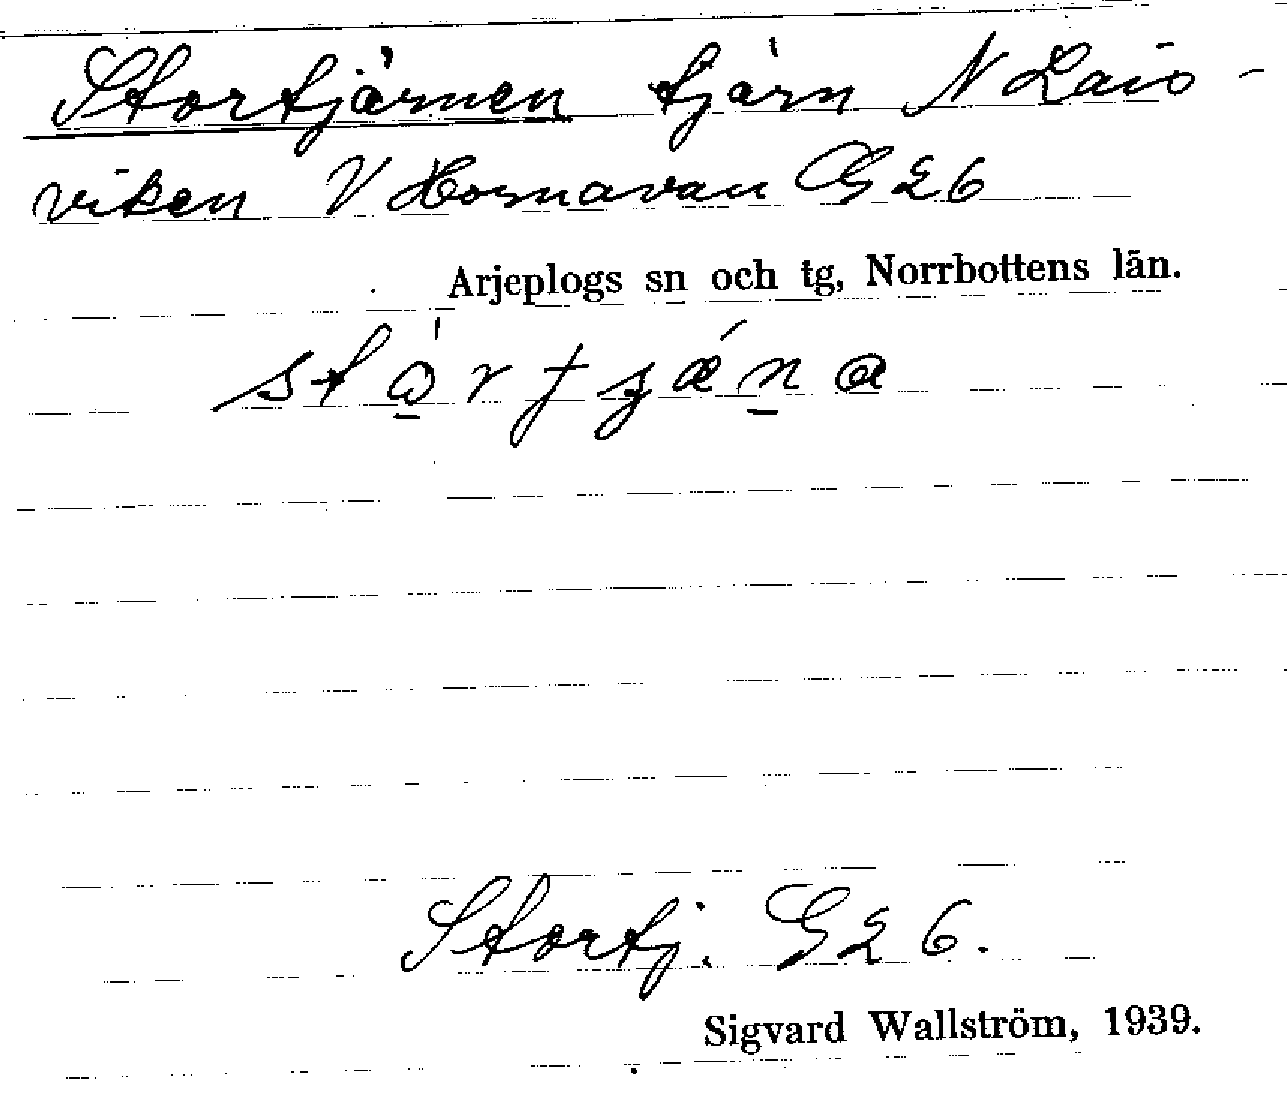 Stortjärnen tjärn N Lais-
viken V Hornavan G 26
Arjeplogs sn och tg, Norrbottens län.
Stortj. G 26.
Sigvard Wallström, 1939.